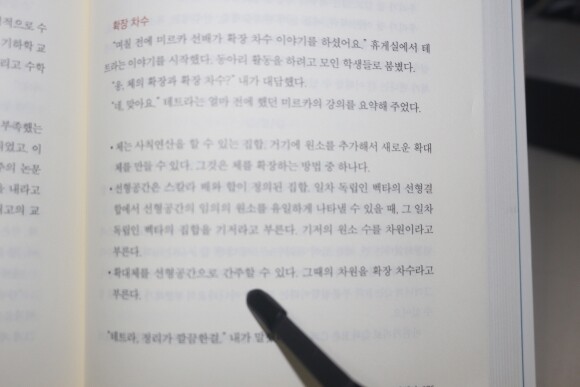 적으로 수
기하학 교
리고 수학
부족했는
었고, 이
주의 논문
을 내라고
대고의 교
확장 차수
"며칠 전에 미르카 선배가 확장 차수 이야기를 하셨어요." 휴게실에서 테
트라는 이야기를 시작했다. 동아리 활동을 하려고 모인 학생들로 붐볐다.
"음, 체의 확장과 확장 차수?" 내가 대답했다.
"네, 맞아요." 테트라는 얼마 전에 했던 미르카의 강의를 요약해 주었다.
• 체는 사칙연산을 할 수 있는 집합. 거기에 원소를 추가해서 새로운 확대
체를 만들 수 있다. 그것은 체를 확장하는 방법 중 하나다.
• 선형공간은 스칼라 배와 합이 정의된 집합. 일차 독립인 벡터의 선형결
합에서 선형공간의 임의의 원소를 유일하게 나타낼 수 있을 때, 그 일차
독립인 벡터의 집합을 기저라고 부른다. 기저의 원소 수를 차원이라고
부른다.
• 확대체를 선형공간으로 간주할 수 있다. 그때의 차원을 확장 차수라고
부른다.
"테트라, 정리가 깔끔한걸." 내가 말